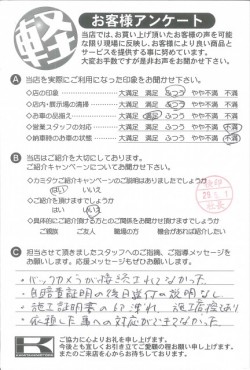 軽
お客様アンケート
当店では、お買い上げ頂いたお客様の声を可能
な限り現場に反映し、お客様により良い商品と
サービスを提供する事に努めています。
大変お手数ですが是非お声をお聞かせ下さい。
A 当店を実際にご利用になった印象をお聞かせ下さい。
◇店の印象 大満足 満足 ふつう やや不満 不満
◇店内・展示場の清掃 大満足 満足 ふつう やや不満 不満
◇お車の品揃え 大満足 満足 ふつう やや不満 不満
◇営業スタッフの対応 大満足 満足 ふつう やや不満 不満
◇納車時のお車の状態 大満足 満足 ふつう やや不満 不満
B 当店はご紹介を大切にしております。
ご紹介キャンペーンについてお聞かせ下さい。
◇カミタケご紹介キャンペーンのご説明はありましたでしょうか
はい いいえ
◇ご紹介を頂けますでしょうか
はい いいえ
◇具体的にご紹介頂ける方とのご関係をお聞かせ頂けますでしょうか
ご親族 ご友人 職場の方 機会があれば紹介したい
C 担当させて頂きましたスタッフへのご指摘、ご指導メッセージを
お願いします。応援メッセージもぜひお願いします。
・バックカメラが接続されてなかった
・自賠責証明の後日送付の説明なし
・施工証明書の印漏れ、施工痕あり
・依頼した事への対応ができてなかった
K
ご協力に心よりお礼を申し上げます。
今後とも宜しくお引き立てご愛顧の程お願い申し上げます。
またのご来店を心からお待ちしております。